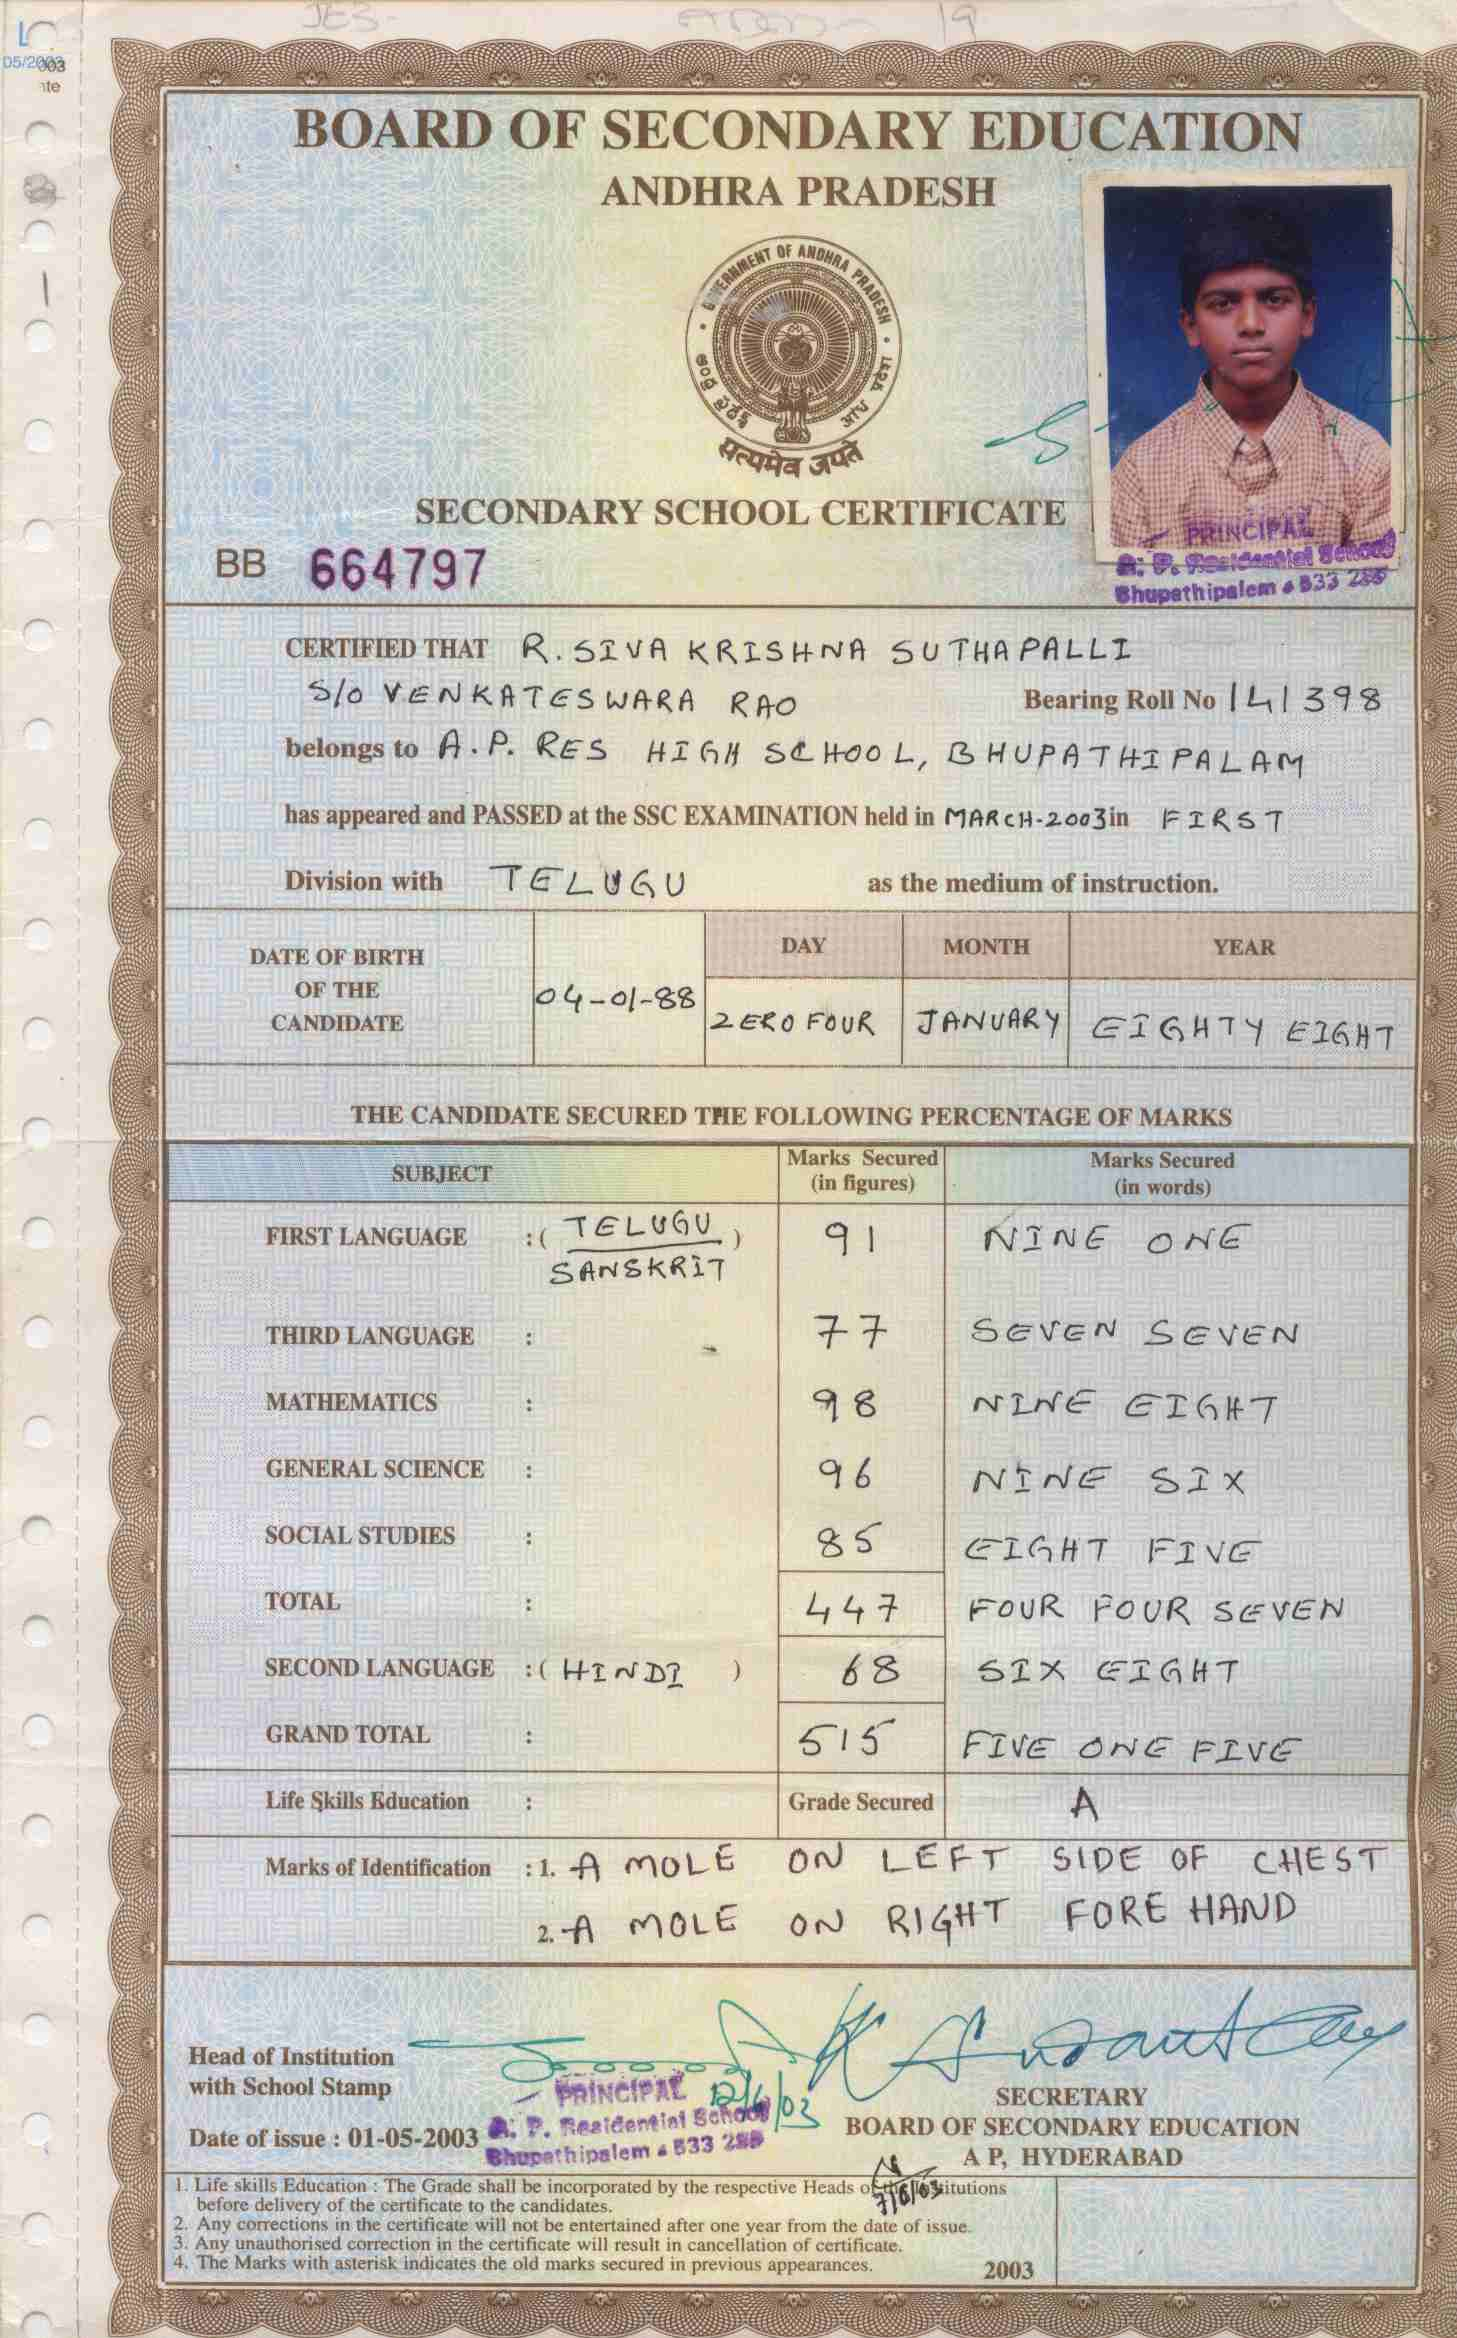 L
05/2003
BOARD OF SECONDARY EDUCATION
ANDHRA PRADESH
GOVERNMENT OF ANDHRA PRADESH
ఆంధ్ర ప్రదేశ్
आन्ध्र प्रदेश
सत्यमेव जयते
SECONDARY SCHOOL CERTIFICATE
BB 664797
PRINCIPAL
A. P. Residential School
Bhupathipalem - 533 286
CERTIFIED THAT R. SIVA KRISHNA SUTHAPALLI
S/O VENKATESWARA RAO Bearing Roll No 141398
belongs to A.P. RES HIGH SCHOOL, BHUPATHIPALAM
has appeared and PASSED at the SSC EXAMINATION held in MARCH-2003 in FIRST
Division with TELUGU as the medium of instruction.
DATE OF BIRTH OF THE CANDIDATE 04-01-88
DAY MONTH YEAR
ZERO FOUR JANUARY EIGHTY EIGHT
THE CANDIDATE SECURED THE FOLLOWING PERCENTAGE OF MARKS
SUBJECT Marks Secured (in figures) Marks Secured (in words)
FIRST LANGUAGE :( TELUGU ) 91 NINE ONE
SANSKRIT
THIRD LANGUAGE : 77 SEVEN SEVEN
MATHEMATICS : 98 NINE EIGHT
GENERAL SCIENCE : 96 NINE SIX
SOCIAL STUDIES : 85 EIGHT FIVE
TOTAL : 447 FOUR FOUR SEVEN
SECOND LANGUAGE :( HINDI ) 68 SIX EIGHT
GRAND TOTAL : 515 FIVE ONE FIVE
Life Skills Education : Grade Secured A
Marks of Identification : 1. A MOLE ON LEFT SIDE OF CHEST
2. A MOLE ON RIGHT FORE HAND
Head of Institution
with School Stamp
PRINCIPAL 12/6/03
A. P. Residential School
Bhupathipalem - 533 286
Date of issue : 01-05-2003
SECRETARY
BOARD OF SECONDARY EDUCATION
A P, HYDERABAD
7/6/03
1. Life skills Education : The Grade shall be incorporated by the respective Heads of the Institutions
before delivery of the certificate to the candidates.
2. Any corrections in the certificate will not be entertained after one year from the date of issue.
3. Any unauthorised correction in the certificate will result in cancellation of certificate.
4. The Marks with asterisk indicates the old marks secured in previous appearances.
2003